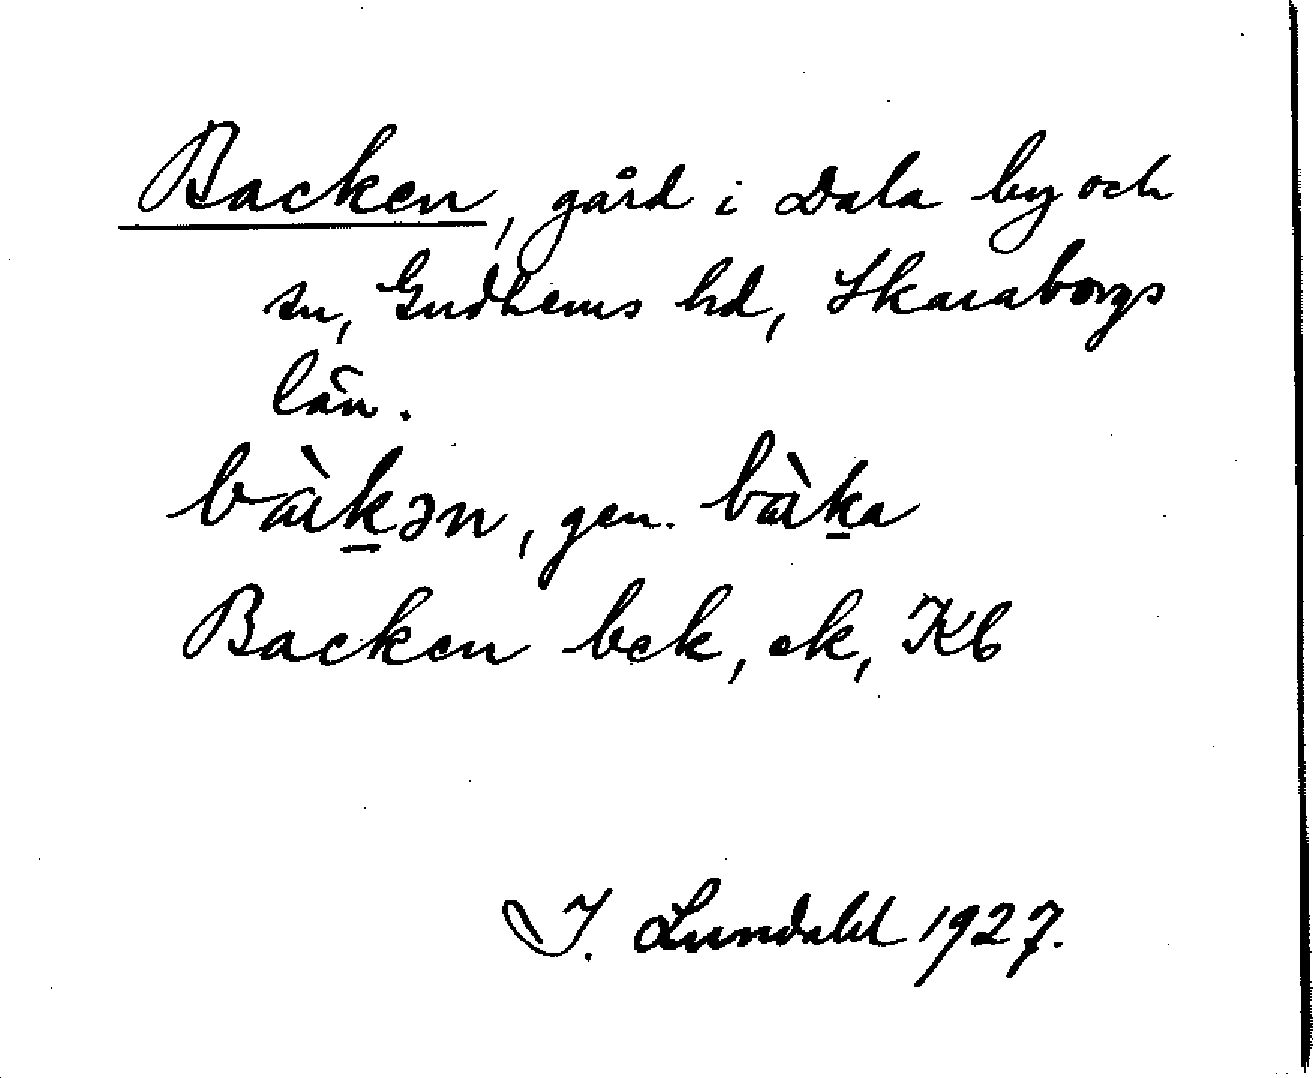 Backen, gård i Dala by och
sn, Gudhems hd, Skaraborgs
län.
bàk̠ən, gen. bàk̠a
Backen bek, ek, Kb
I. Lundahl 1927.